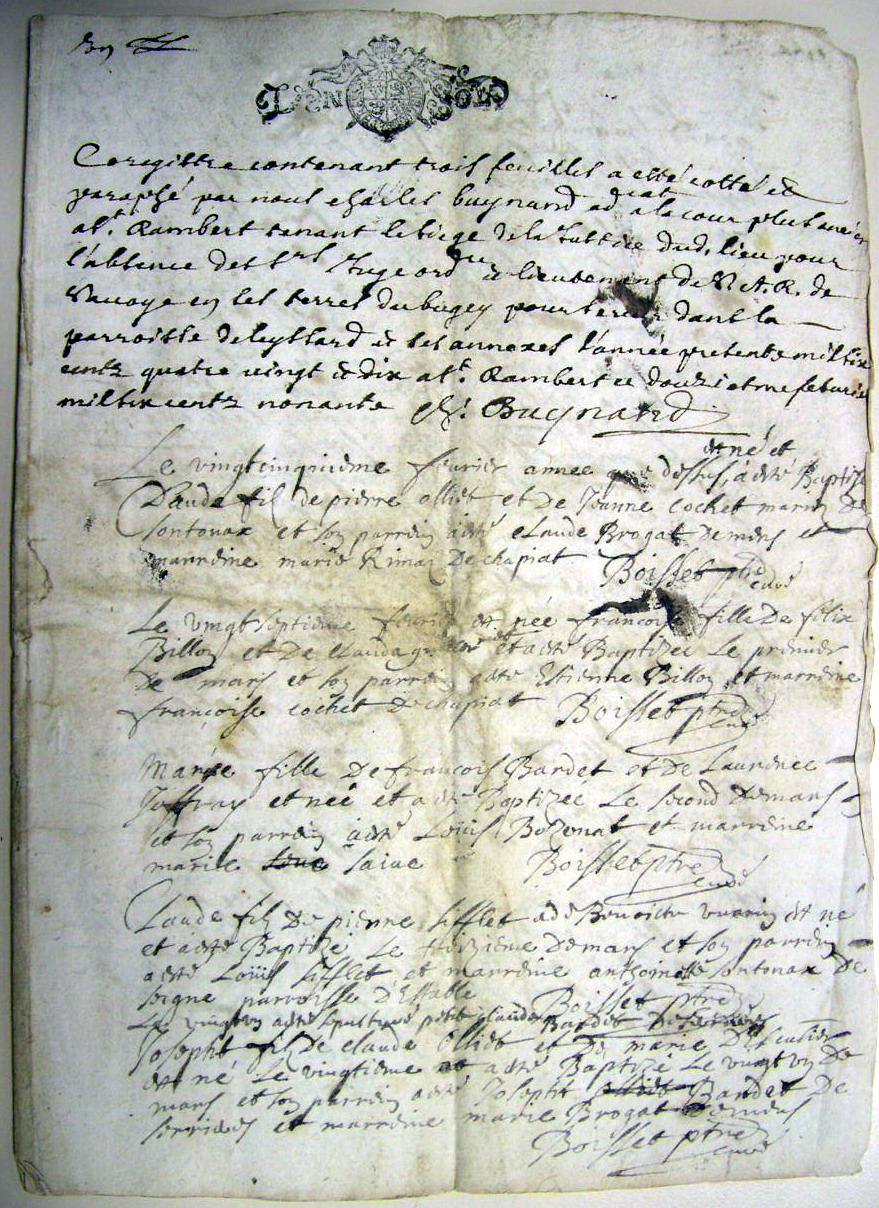 UN SOL
Ce registre contenant trois feuilles a esté cotté et
paraphé par nous Charles Buynand advocat a la cour plus ancien
a St. Rambert tenant le siege de la Justice dud. lieu pour
l'absence des Srs Juge ord. et lieutenant de S A. R. de
Savoye en ses terres du bugey pour servir dans la
parroisse de Leyssard et ses annexes l'année presente mil six
centz quatre vingt et dix a St. Rambert ce douziesme febvrier
mil six centz nonante Ch. Buynand
est né et
Le vingtcinquieme fevrier année que dessus, a esté Baptizé
Claude fils de pierre olliet et de Jeanne cochet mariés de
sontonax et son parrein a esté claude Brogat de mens et
marreine marie Rimaz de chapiat Boisset ptre
curé
Le vingt septieme fevrier est née francoise fille de felix
Billon et de Clauda et a esté Baptizée Le premier
de mars et son parrein a esté Estienne Billon et marreine
françoise cochet de chapiat Boisset ptre
curé
Marie fille de francois Bardet et de Laurence
Joffray est neé et a esté Baptizeé Le second de mars
et son parrein a esté Loüis Bozonat et marreine
marie Saive Boisset ptre
curé
Claude fils de pierre sifflet et de Benoicte est né
et a esté Baptizé Le treizieme de mars et son parrein
a esté Loüis sifflet et marreine antoinette sontonax de
soigne parroisse d'Estable Boisset ptre
Le vingt un a esté petit claude Bardet
Joseph fils de claude olliet et de marie
est né Le vingtieme et a esté Baptizé Le vingt un de
mars et son parrein a esté Joseph Bardet de
serrieres et marreine marie Brogat de mens
Boisset ptre
curé